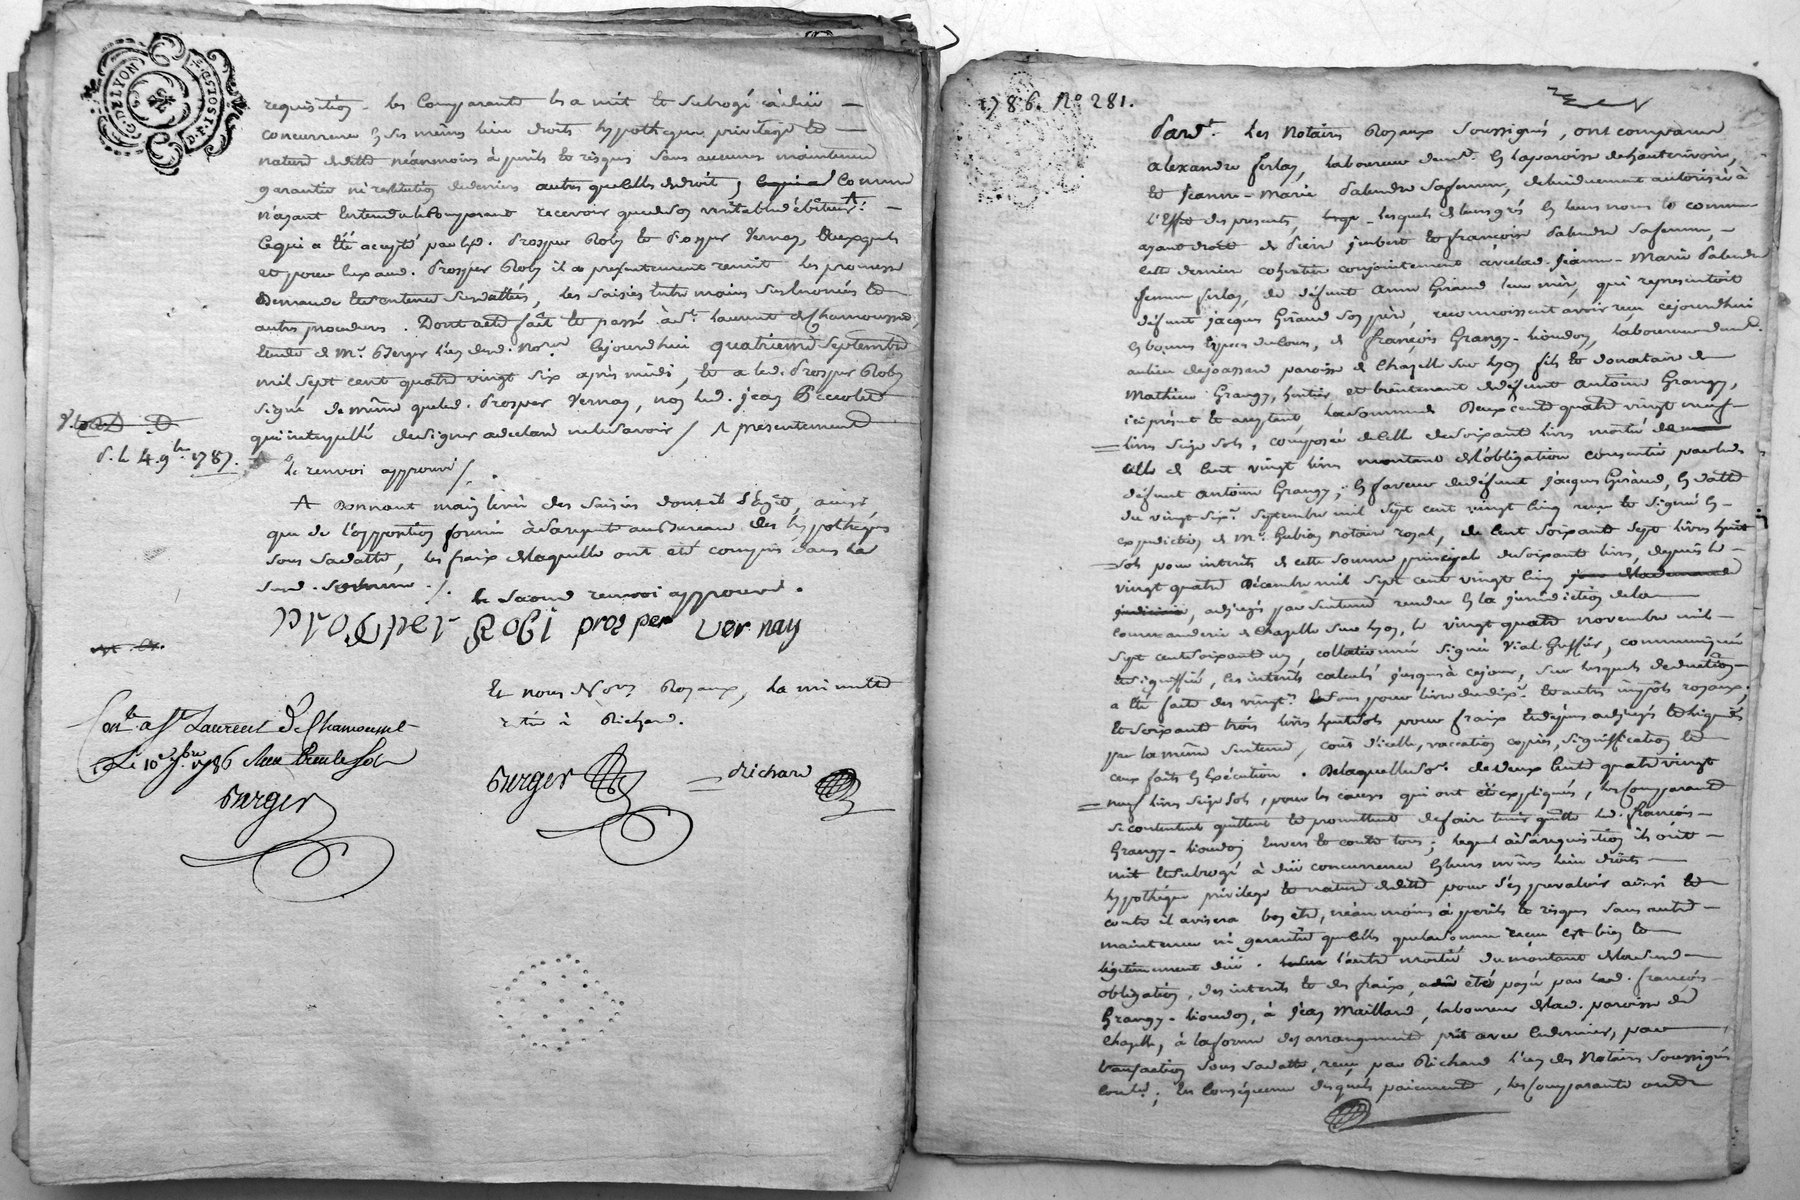 G. DE LYON
requisition les Comparants l'a mit et subrogé à düe
concurrence en ses mêmes lieu droits hypotheques privilege et
nature de dette néanmoins à perils et risques sans aucune maintenue
garantie ni restitution de deniers autres que celle de droit, comme
n'ayant entendu le Comparant recevoir que de son véritable débiteur.
Ce qui a été accepté par led. Prosper Roby et Prosper Vernay,
et pour lexand. Prosper Roby il a présentement remit les promesse
Demande et sentence susdattées, les saisies entre mains susénoncées et
autres procedures. Dont acte fait et passé à St. Laurent de Chamousset,
Etude de Me. Berger l'un desd. Nores. cejourdhui quatrieme septembre
mil sept cent quatre vingt six après midi, et a led. Prosper Roby
signé de même que led. Prosper Vernay, non led. jean
qui interpellé de signer a déclaré ne le savoir / presentement
le renvoi approuvé /.
P. le 4. 9bre 1787.
A Donnant main levée des saisies dont il s'agit, ainsi
que de l'opposition formée à sa requete au Bureau des hypotheques
sous sa datte, les fraix de laquelle ont été compris dans la
susd. somme /. le second renvoi approuvé.
prosper Robi prosper vernay
Et nous Nores Royaux, la minutte
restée à Richard.
Con.lé a St Laurent de Chamousset
Le 10e 7bre 1786 Reçu
Berger
Berger
Richard
1786. No 281.
Pardt. les Notaires Royaux soussignés, ont comparu
alexandre ferlay, laboureur demt. en la paroisse de hauterivoire,
et Jeanne-Marie Palandre sa femme, de lui duement autorisée à
l'Effet des presentes, lesquels de leurs grés en leurs noms et comme
ayant droit de Pierre jmbert et françoise Palandre sa femme,
cette derniere cohéritiere conjointement avec lad. Jeanne-Marie Palandre
femme ferlay, de défunt Anne Giraud leur mère, qui representoit
défunt jacques Giraud son père, reconnoissent avoir reçu cejourdhui
en bonnes especes de cours, de françois Grangy-Lioudon, laboureur demt.
au lieu de joassand paroisse de Chazelle sur Lyon fils et donataire de
Mathieu Grangy, heritier et bientenant de défunt antoine Grangy,
ici présent et acceptant, la somme de Deux cent quatre vingt neuf
livres seize sols, composée de celle de soixante livres moitié de
celle de cent vingt livres montant de l'obligation consentie par led.
défunt antoine Grangy, en faveur dud. défunt jacques Giraud, en datte
du vingt six septembre mil sept cent vingt cinq reçue et signée en
expedition de Me. Gubian notaire royal, de cent soixante sept livres huit
sols pour interêts de cette somme principale de soixante livres, depuis le
vingt quatre Décembre mil sept cent vingt cinq
adjugés par sentence rendue en la jurisdiction de la
commanderie de Chazelle sur Lyon, le vingt quatre novembre mil
sept cent soixante un, collationnée signée Vial Greffier, communiquée
et signiffiée, les interêts calculés jusqu'à ce jour, sur lesquels deduction
a été faite des vingt. et sous pour livre du dixe. et autres impôts royaux;
et soixante trois livres huit sols pour fraix et dépens adjugés et liquidés
par la même sentence, coût d'icelle, vaccation copies, signiffication et
ceux faits en exécution. De laquelle so. de Deux cent quatre vingt
neuf livres seize sols, pour les causes qui ont été expliquées, les Comparants
se contentent quittent et promettent de faire tenir quitte led. françois
Grangy-Lioudon envers et contre tous; lequel à sa requisition ils ont
mit et subrogé à düe concurrence en leurs mêmes lieu droits
hypotheque privilege et nature de dette pour s'en prevaloir ainsi et
contre il avisera bon être, néanmoins à perils et risques sans autre
maintenue ni garantie que celle que la somme reçue est bien et
légitimement düe. l'autre moitié du montant de la susd.
obligation, des interêts et des fraix, a été payé par led. françois
Grangy-Lioudon, à Jean Maillard, laboureur de lad. paroisse de
Chazelle, à la forme des arrangements prit avec ce dernier, par
transaction sous sa datte, reçue par Richard l'un des Notaires soussignés
; En conséquence desquels paiements, les Comparants ont